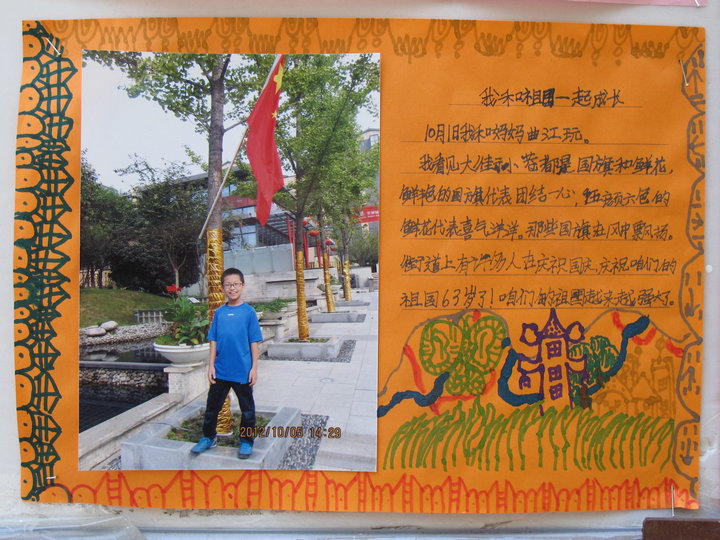 我和祖国一起成长
10月1日我和妈妈曲江玩。
我看见大街小巷都是国旗和鲜花,
鲜艳的国旗代表团结一心,五颜六色的
鲜花代表喜气洋洋。那些国旗在风中飘扬。
街道上有许多人在庆祝国庆,庆祝咱们的
祖国63岁了!咱们的祖国越来越强大了。
2012/10/05 14:29